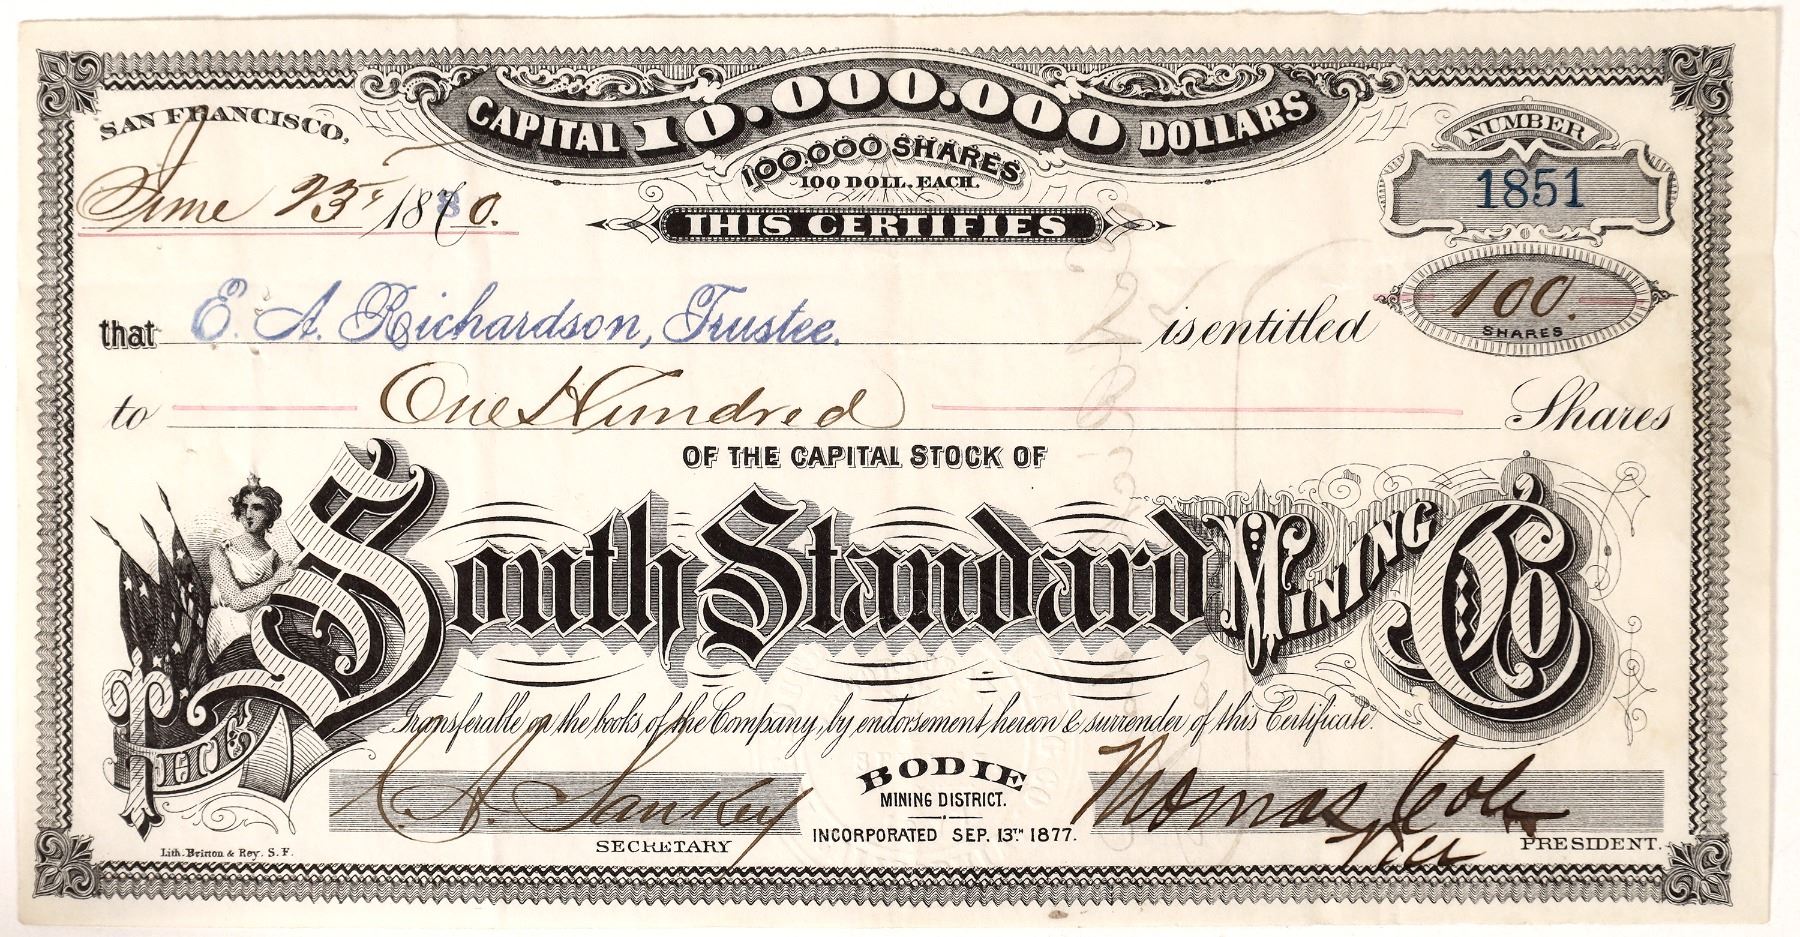 CAPITAL 10.000.000 DOLLARS
100.000 SHARES
100 DOLL. EACH.
SAN FRANCISCO,
June 23rd 1880.
NUMBER
1851
THIS CERTIFIES
that E. A. Richardson, Trustee. is entitled
100.
SHARES
to One Hundred Shares
OF THE CAPITAL STOCK OF
THE South Standard MINING Co
Transferable on the books of the Company, by endorsement hereon & surrender of this Certificate.
C. A. Sankey
SECRETARY
BODIE
MINING DISTRICT.
INCORPORATED SEP. 13TH 1877.
Thomas Cole
Vice PRESIDENT.
Lith. Britton & Rey. S. F.